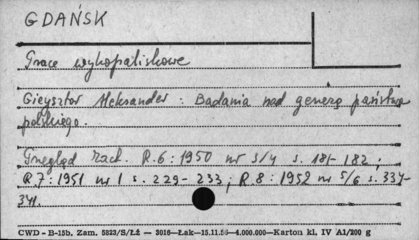 GDAŃSK
Prace wykopaliskowe
Gieysztor Aleksander : Badania nad genezą państwa
polskiego.
Przegląd Zach. R.6 : 1950 nr 3/4 s. 181-182 ;
R.7 : 1951 nr 1 s. 229-233 ; R.8 : 1952 nr 5/6 s. 334-
341.
CWD - B-15b, Zam. 5823/S/Łż — 3016—Łak—15.11.56—4.000.000—Karton kl. IV A1/200 g